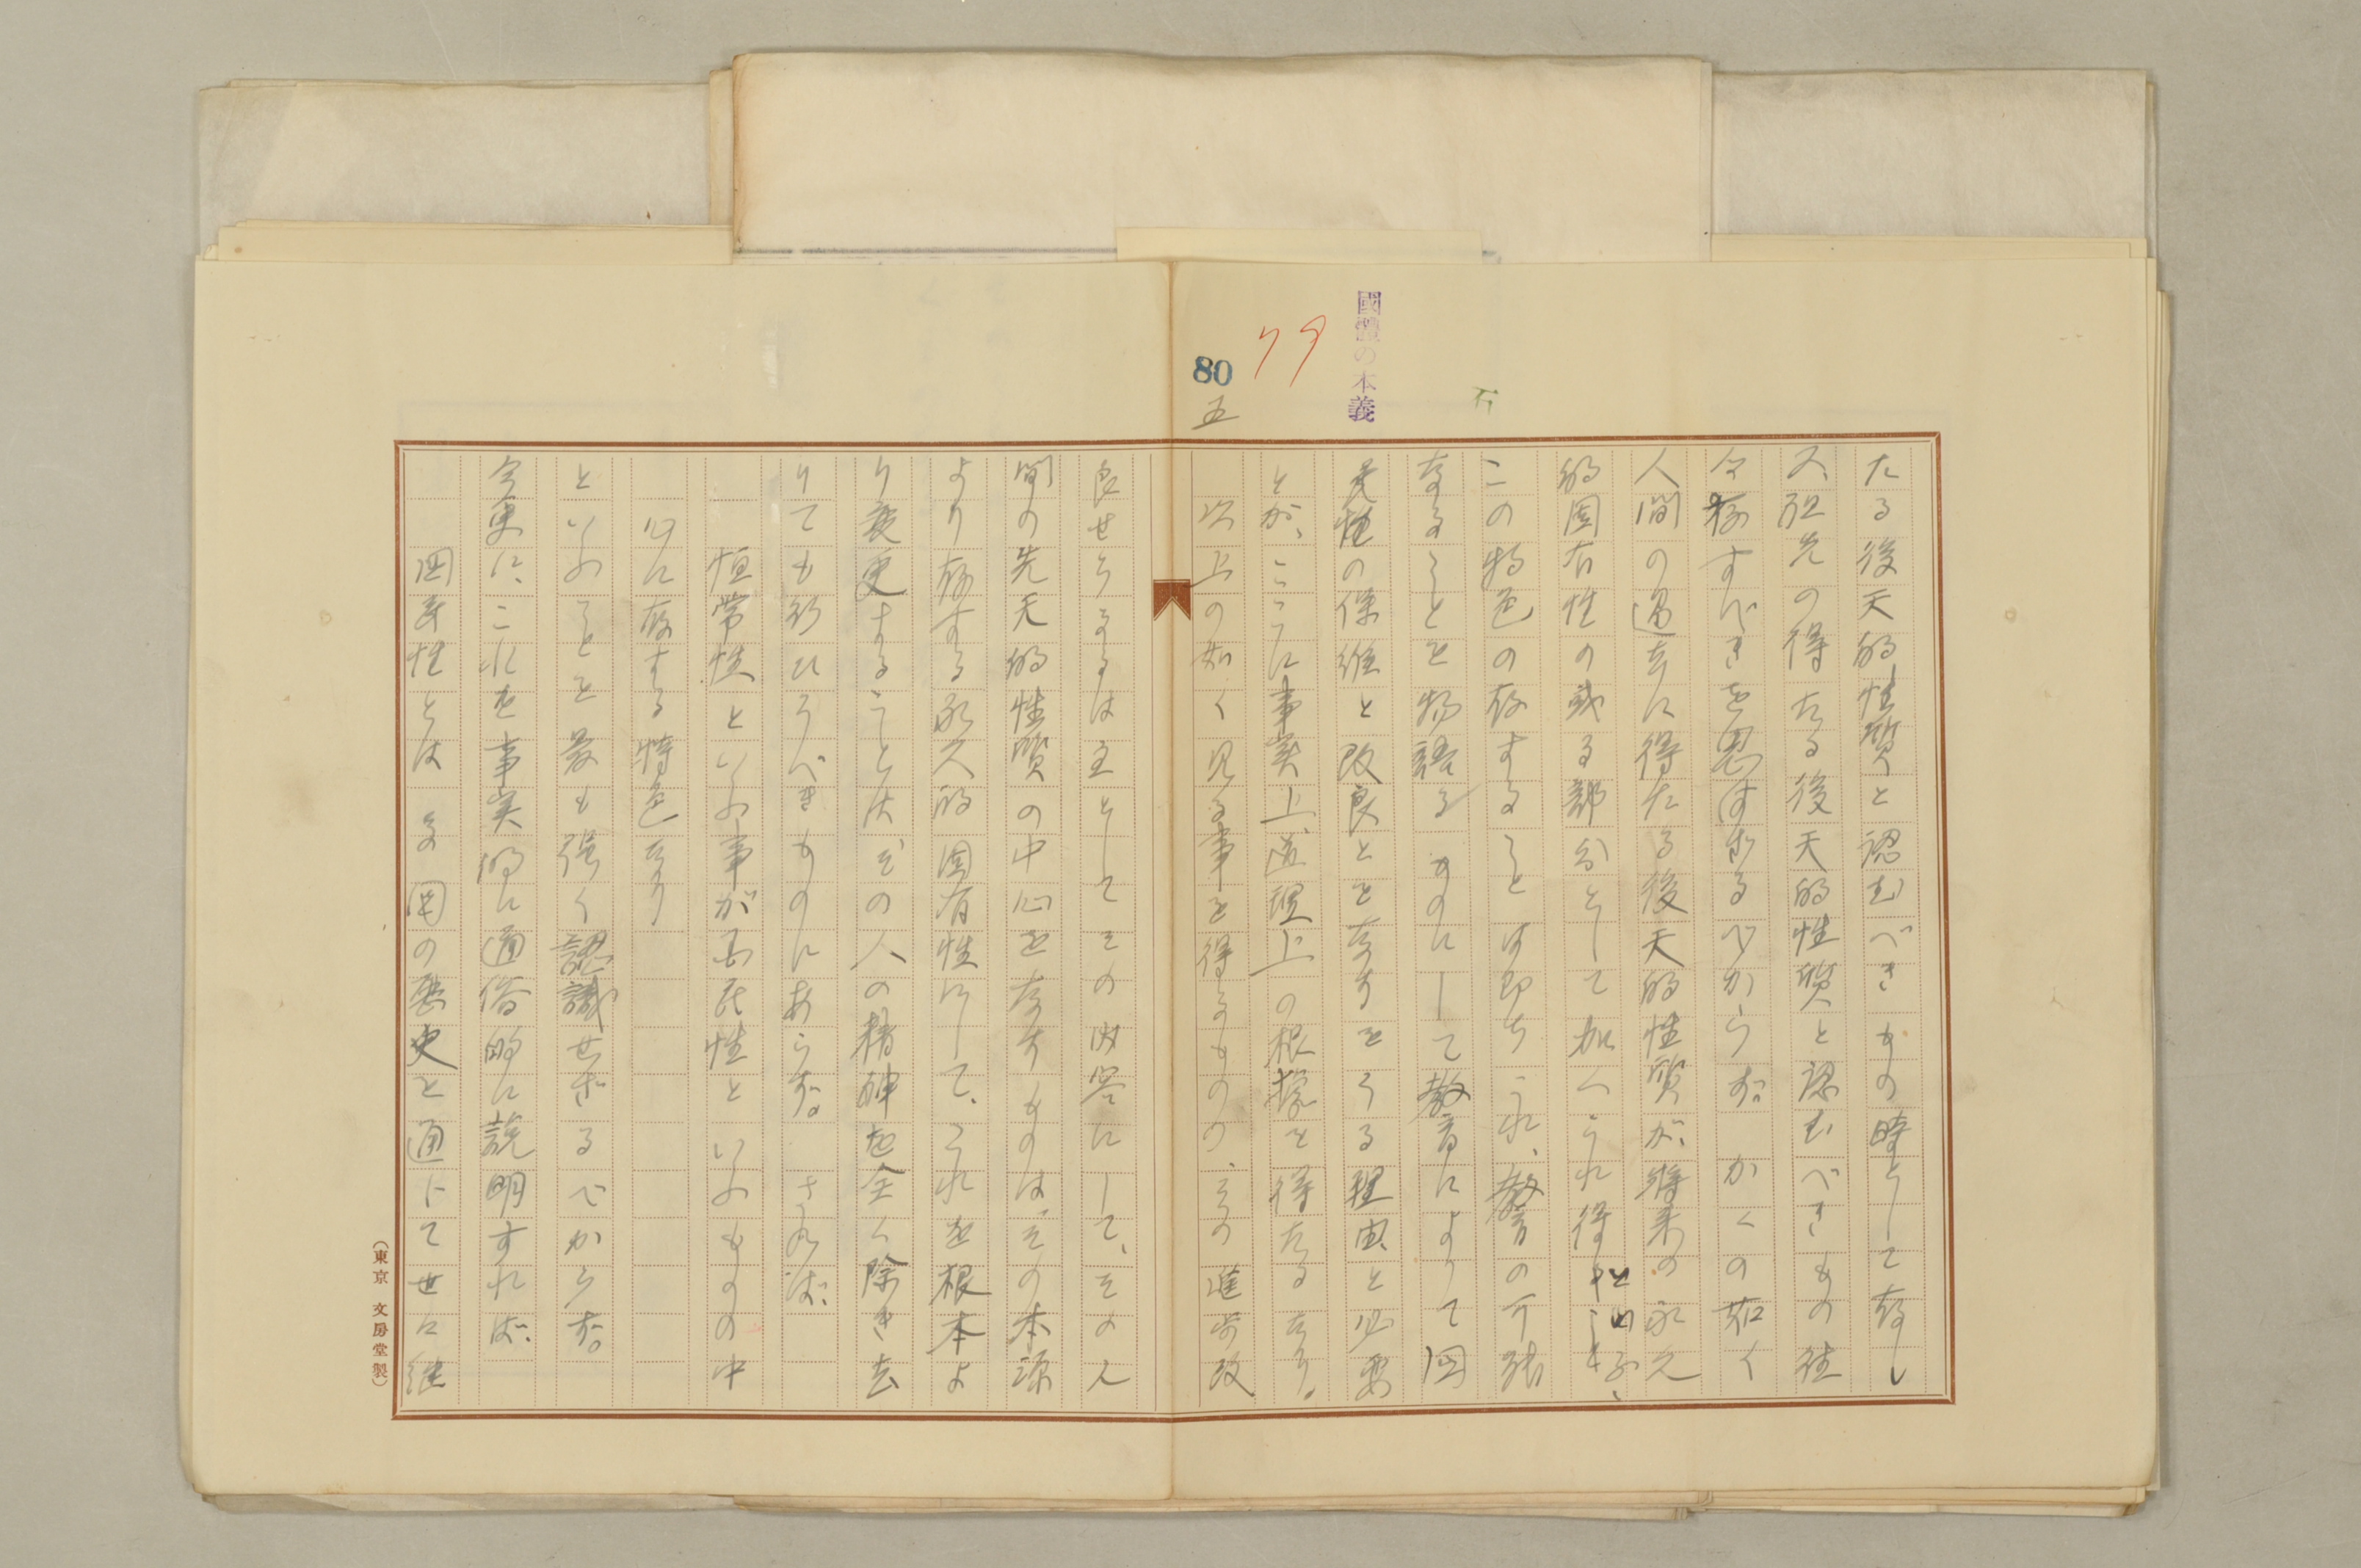 國體の本義
79
80
五
石
たる後天的性質と認むべきもの時として存し
又、祖先の得たる後天的性質と認むべきもの往
々存すべきを思はざるべからず。かくの如く
人間の過去に得たる後天的性質が、将来の永久
的固有性の或る部分として加へられ得
この特色の存することは即ちこれ、教育の可能
なることを物語るものにして教育によりて国
民性の保維と改良とを なすをうる理由と必要
とが、ここに事実上道理上の根拠を得たるなり。
以上の如く見る事を得るものの、その進歩改
良せらるるは主としてその内容にして、その人
間の先天的性質の中心をなすものは、その本源
より存する永久的固有性にして、これを根本よ
り変更することはその人の精神を全く除き去
りても行ひうべきものにあらず。されば、
恒常性といふ事が国民性といふものの中
心に存する特色なり
といふことを最も強く認識せざるべからず。
今更に、これを事実的に通俗的に説明すれば、
国民性とは その国の歴史を通じて世々継
（東京 文房堂製）